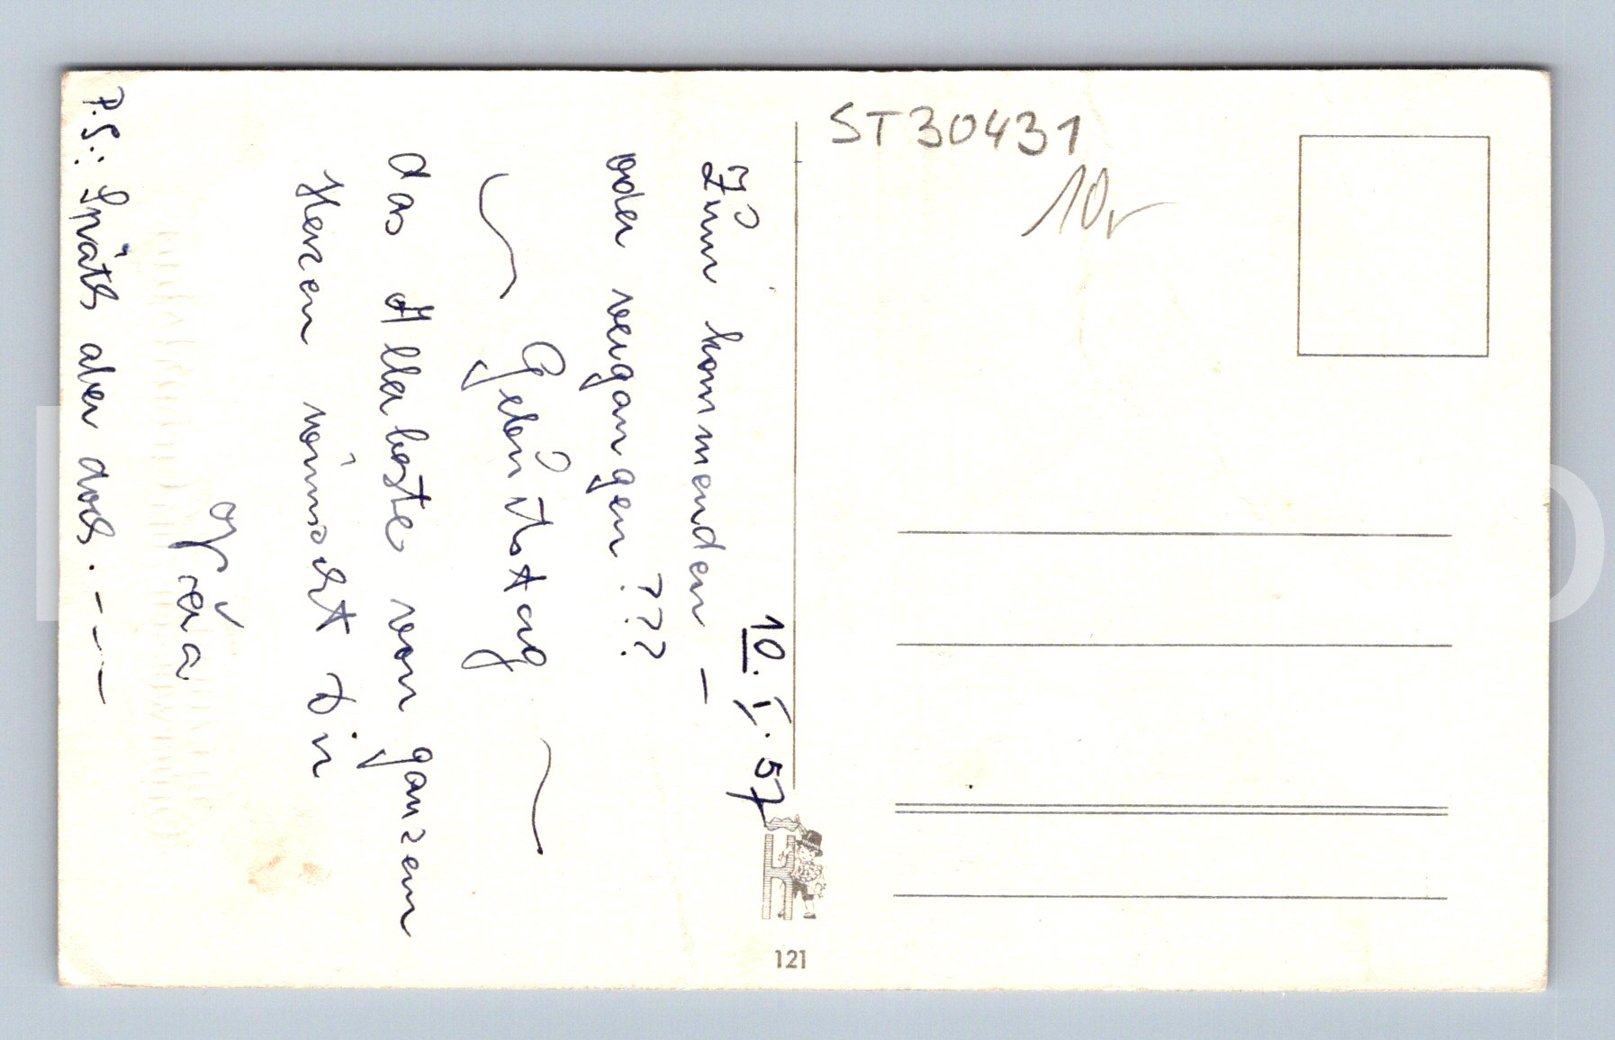 ST30431
10,-
10. I. 57
Zum kommenden –
oder vergangen ???
~ Geburtstag ~
das Allerbeste von ganzem
Herzen wünscht Dir
P.S.: Spät aber doch. – – –
121